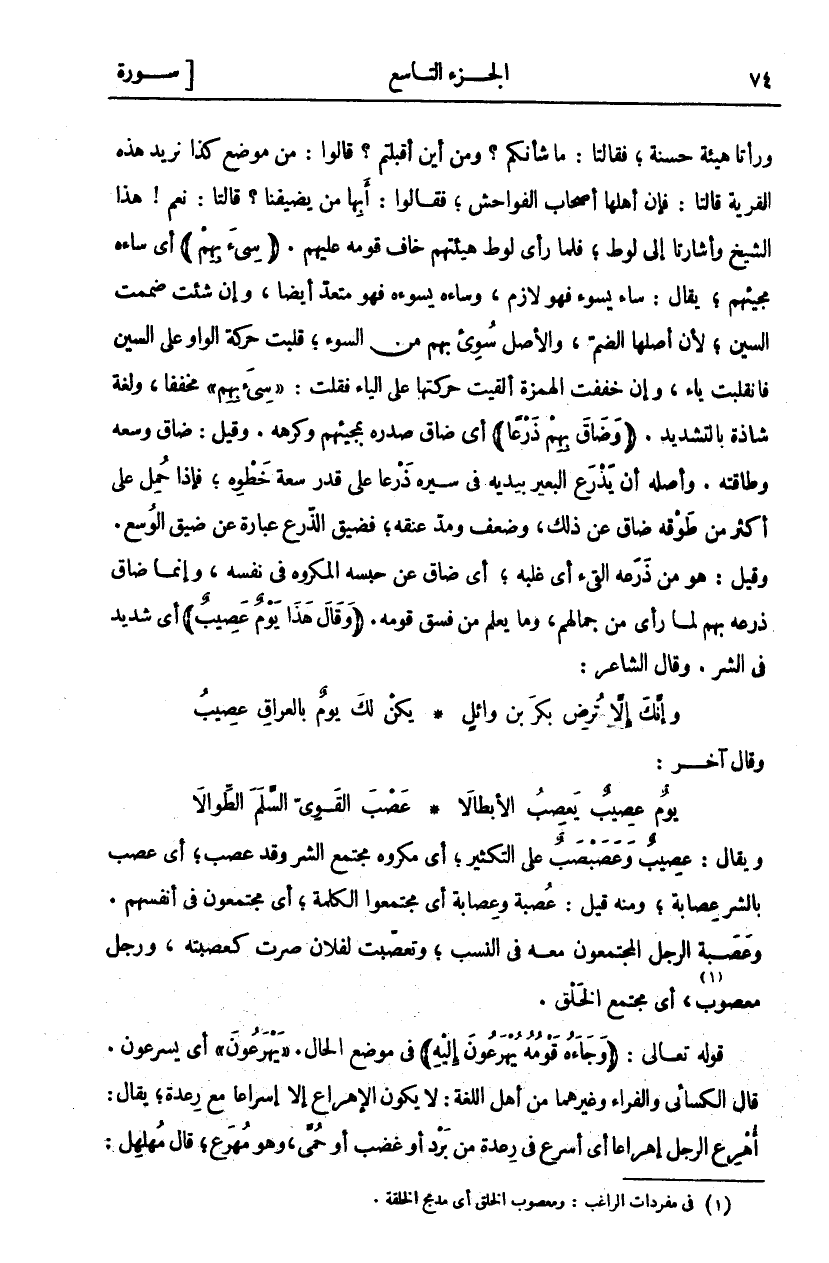 ٧٤ الجزء التاسع [ سورة
ورأتا هيئة حسنة ؛ فقالتا : ما شأنكم ؟ ومن أين أقبلتم ؟ قالوا : من موضع كذا نريد هذه
القرية قالتا : فإن أهلها أصحاب الفواحش ؛ فقالوا : أبها من يضيفنا ؟ قالتا : نعم ! هذا
الشيخ وأشارتا إلى لوط ؛ فلما رأى لوط هيئتهم خاف قومه عليهم . ﴿ سِىءَ بِهِمْ ﴾ أى ساءه
مجيئهم ؛ يقال : ساء يسوء فهو لازم ، وساءه يسوءه فهو متعد أيضا ، وإن شئت ضممت
السين ؛ لأن أصلها الضم ، والأصل سُوِئ بهم من السوء ؛ قلبت حركة الواو على السين
فانقلبت ياء ، وإن خففت الهمزة ألقيت حركتها على الياء فقلت : «سِىَ بِهِم» مخففا ، ولغة
شاذة بالتشديد . ﴿وَضَاقَ بِهِمْ ذَرْعًا﴾ أى ضاق صدره بمجيئهم وكرهه . وقيل : ضاق وسعه
وطاقته . وأصله أن يَذْرَع البعير بيديه فى سيره ذَرْعا على قدر سعة خَطْوِه ؛ فإذا حُمِل على
أكثر من طَوْقه ضاق عن ذلك ، وضعف ومدّ عنقه ؛ فضيق الذّرع عبارة عن ضيق الوُسع .
وقيل : هو من ذَرَعه القىء أى غلبه ؛ أى ضاق عن حبسه المكروه فى نفسه ، وإنما ضاق
ذرعه بهم لما رأى من جمالهم ، وما يعلم من فسق قومه . ﴿وَقَالَ هَذَا يَوْمٌ عَصِيبٌ﴾ أى شديد
فى الشر . وقال الشاعر :
وإنَّكَ إلَّا تُرضِ بكرَ بن وائلٍ * يكنْ لكَ يومٌ بالعراقِ عصيبُ
وقال آخر :
يومٌ عصيبٌ يَعصِبُ الأبطالَا * عَصْبَ القَوِىّ السَّلَمَ الطِّوالَا
ويقال : عصيبٌ وعَصَبْصَبٌ على التكثير ؛ أى مكروه مجتمع الشر وقد عصب ؛ أى عصب
بالشر عصابة ؛ ومنه قيل : عُصبة وعِصابة أى مجتمعوا الكلمة ؛ أى مجتمعون فى أنفسهم .
وعَصَبة الرجل المجتمعون معه فى النسب ؛ وتعصّبت لفلان صرت كعصبته ، ورجل
معصوب(١) ، أى مجتمع الخَلْق .
قوله تعالى : ﴿وَجَاءَهُ قَوْمُهُ يُهْرَعُونَ إِلَيْهِ﴾ فى موضع الحال . «يُهْرَعُونَ» أى يسرعون .
قال الكسائى والفراء وغيرهما من أهل اللغة : لا يكون الإهراع إلا إسراعا مع رِعدة ؛ يقال :
أُهْرِع الرجل إهراعا أى أسرع فى رِعدة من بَرْد أو غضب أو حُمَّى ، وهو مُهْرَع ؛ قال مُهلهِل :
(١) فى مفردات الراغب : ومعصوب الخلق أى مدمج الخلقة .